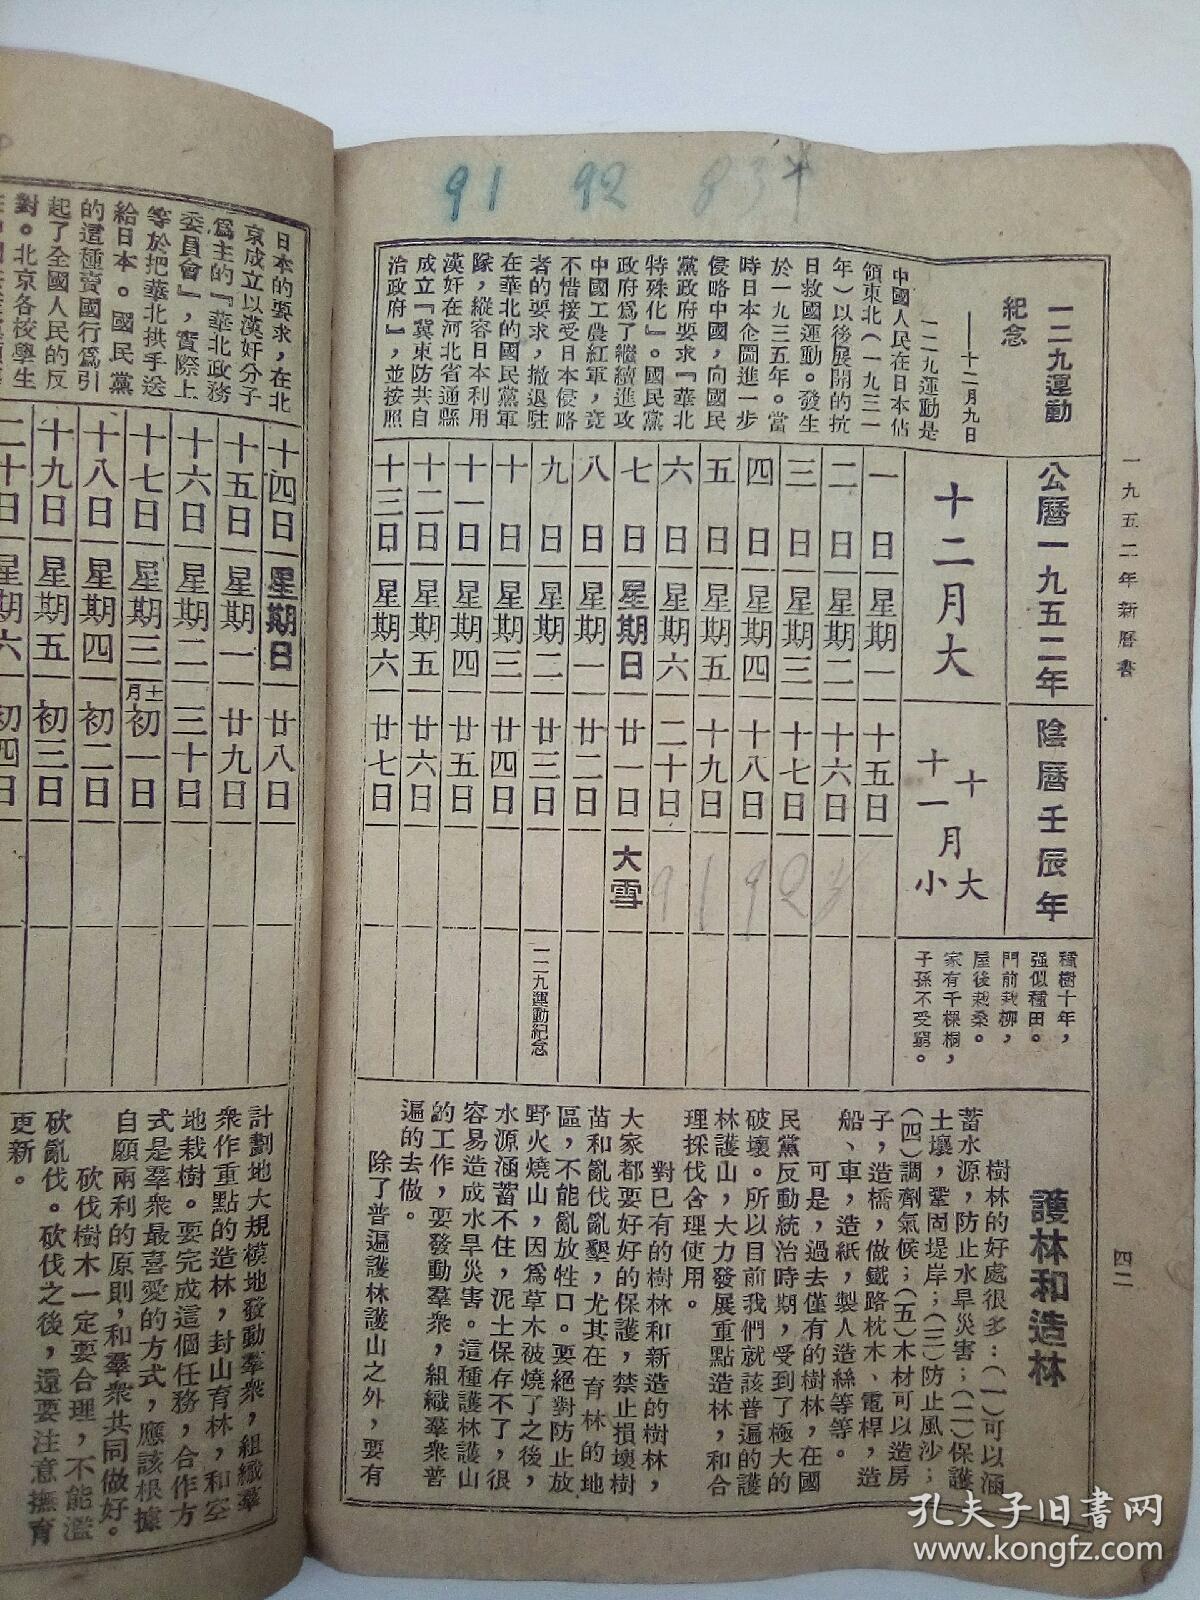 91 92
一九五二年新曆書
四二
一二九運動
紀念
——十二月九日
一二九運動是
中國人民在日本佔
領東北(一九三一
年)以後展開的抗
日救國運動。發生
於一九三五年。當
時日本企圖進一步
侵略中國,向國民
黨政府要求『華北
特殊化』。國民黨
政府爲了繼續進攻
中國工農紅軍,竟
不惜接受日本侵略
者的要求,撤退駐
在華北的國民黨軍
隊,縱容日本利用
漢奸在河北省通縣
成立『冀東防共自
治政府』,並按照
公曆一九五二年 陰曆壬辰年
十二月大
十月大
十一月小
種樹十年,
强似種田。
門前栽柳,
屋後栽桑。
家有千棵桐,
子孫不受窮。
一日 星期一 十五日
二日 星期二 十六日
三日 星期三 十七日
四日 星期四 十八日
五日 星期五 十九日
六日 星期六 二十日
七日 星期日 廿一日 大雪
八日 星期一 廿二日
九日 星期二 廿三日 一二九運動紀念
十日 星期三 廿四日
十一日 星期四 廿五日
十二日 星期五 廿六日
十三日 星期六 廿七日
護林和造林
樹林的好處很多:(一)可以涵
蓄水源,防止水旱災害;(二)保護
土壤,鞏固堤岸;(三)防止風沙;
(四)調劑氣候;(五)木材可以造房
子,造橋,做鐵路枕木、電桿,造
船、車,造紙,製人造絲等等。
可是,過去僅有的樹林,在國
民黨反動統治時期,受到了極大的
破壞。所以目前我們就該普遍的護
林護山,大力發展重點造林,和合
理採伐合理使用。
對已有的樹林和新造的樹林,
大家都要好好的保護,禁止損壞樹
苗和亂伐亂墾,尤其在育林的地
區,不能亂放牲口。要絕對防止放
野火燒山,因爲草木被燒了之後,
水源涵蓄不住,泥土保存不了,很
容易造成水旱災害。這種護林護山
的工作,要發動羣衆,組織羣衆普
遍的去做。
除了普遍護林護山之外,要有
日本的要求,在北
京成立以漢奸分子
爲主的『華北政務
委員會』,實際上
等於把華北拱手送
給日本。國民黨
的這種賣國行爲引
起了全國人民的反
對。北京各校學生
十四日 星期日 廿八日
十五日 星期一 廿九日
十六日 星期二 三十日
十七日 星期三 十一月初一日
十八日 星期四 初二日
十九日 星期五 初三日
二十日 星期六 初四日
計劃地大規模地發動羣衆,組織羣
衆作重點的造林,封山育林,和空
地栽樹。要完成這個任務,合作方
式是羣衆最喜愛的方式,應該根據
自願兩利的原則,和羣衆共同做好。
砍伐樹木一定要合理,不能濫
砍亂伐。砍伐之後,還要注意撫育
更新。
孔夫子旧书网
www.kongfz.com